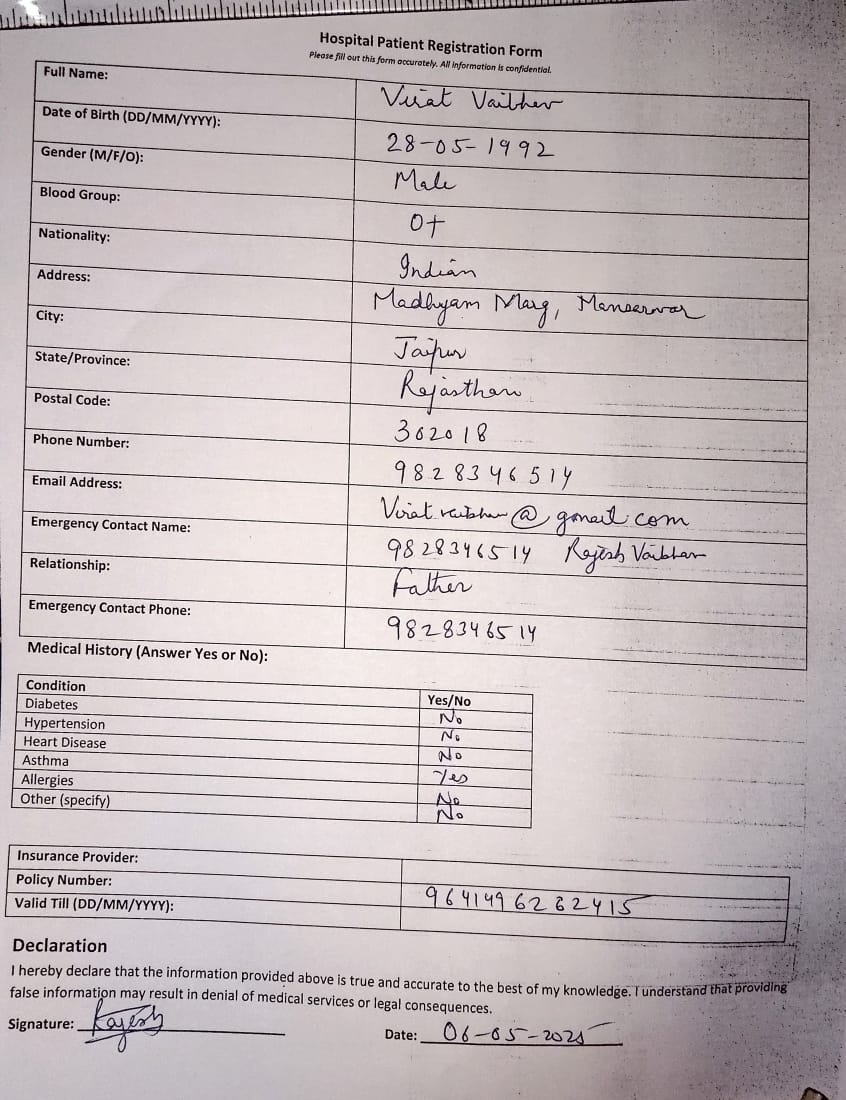 Hospital Patient Registration Form
Please fill out this form accurately. All information is confidential.
Full Name: Virat Vaibhav
Date of Birth (DD/MM/YYYY): 28-05-1992
Gender (M/F/O): Male
Blood Group: O+
Nationality: Indian
Address: Madhyam Marg, Mansarovar
City: Jaipur
State/Province: Rajasthan
Postal Code: 302018
Phone Number: 9828346514
Email Address: Virat.vaibhav@gmail.com
Emergency Contact Name: 9828346514 Rajesh Vaibhav
Relationship: Father
Emergency Contact Phone: 9828346514
Medical History (Answer Yes or No):
Condition Yes/No
Diabetes No
Hypertension No
Heart Disease No
Asthma Yes
Allergies No
Other (specify) No
Insurance Provider:
Policy Number: 9641496262415
Valid Till (DD/MM/YYYY):
Declaration
I hereby declare that the information provided above is true and accurate to the best of my knowledge. I understand that providing
false information may result in denial of medical services or legal consequences.
Signature: Rajesh
Date: 06-05-2025